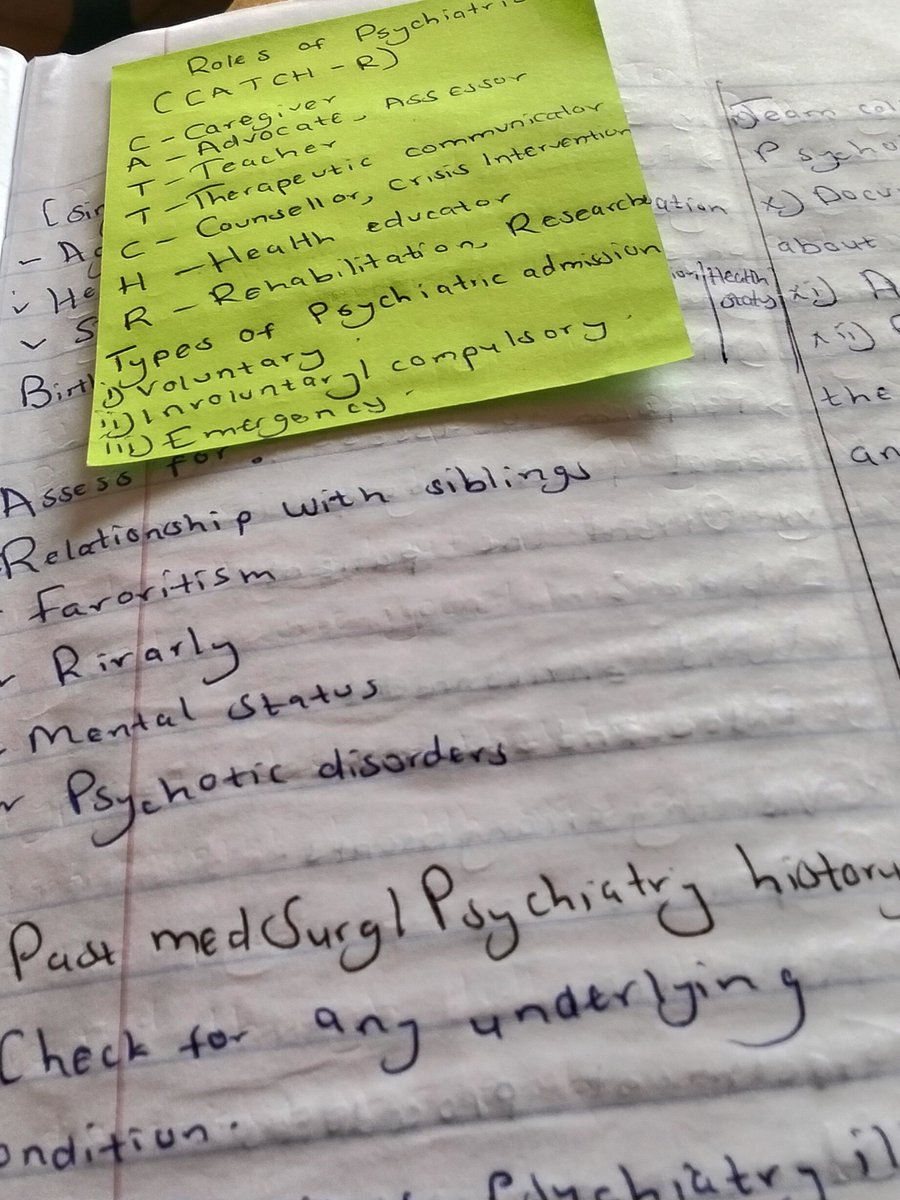 Roles of Psychiatric
(CATCH-R)
C - Caregiver
A - Advocate, Assessor
T - Teacher
T - Therapeutic communicator
C - Counsellor, Crisis Intervention
H - Health educator
R - Rehabilitation, Researcher
Types of Psychiatric admission
i) Voluntary.
ii) Involuntary/compulsory.
iii) Emergency.
Assess for.
Relationship with siblings
Faroritism
Rirarly
Mental Status
Psychotic disorders
Past med/Surg/Psychiatry history
Check for any underlying
ondition.
Psychiatry il
Team col
Psycho
x) Docu
about
xi) A
xii)
the
an